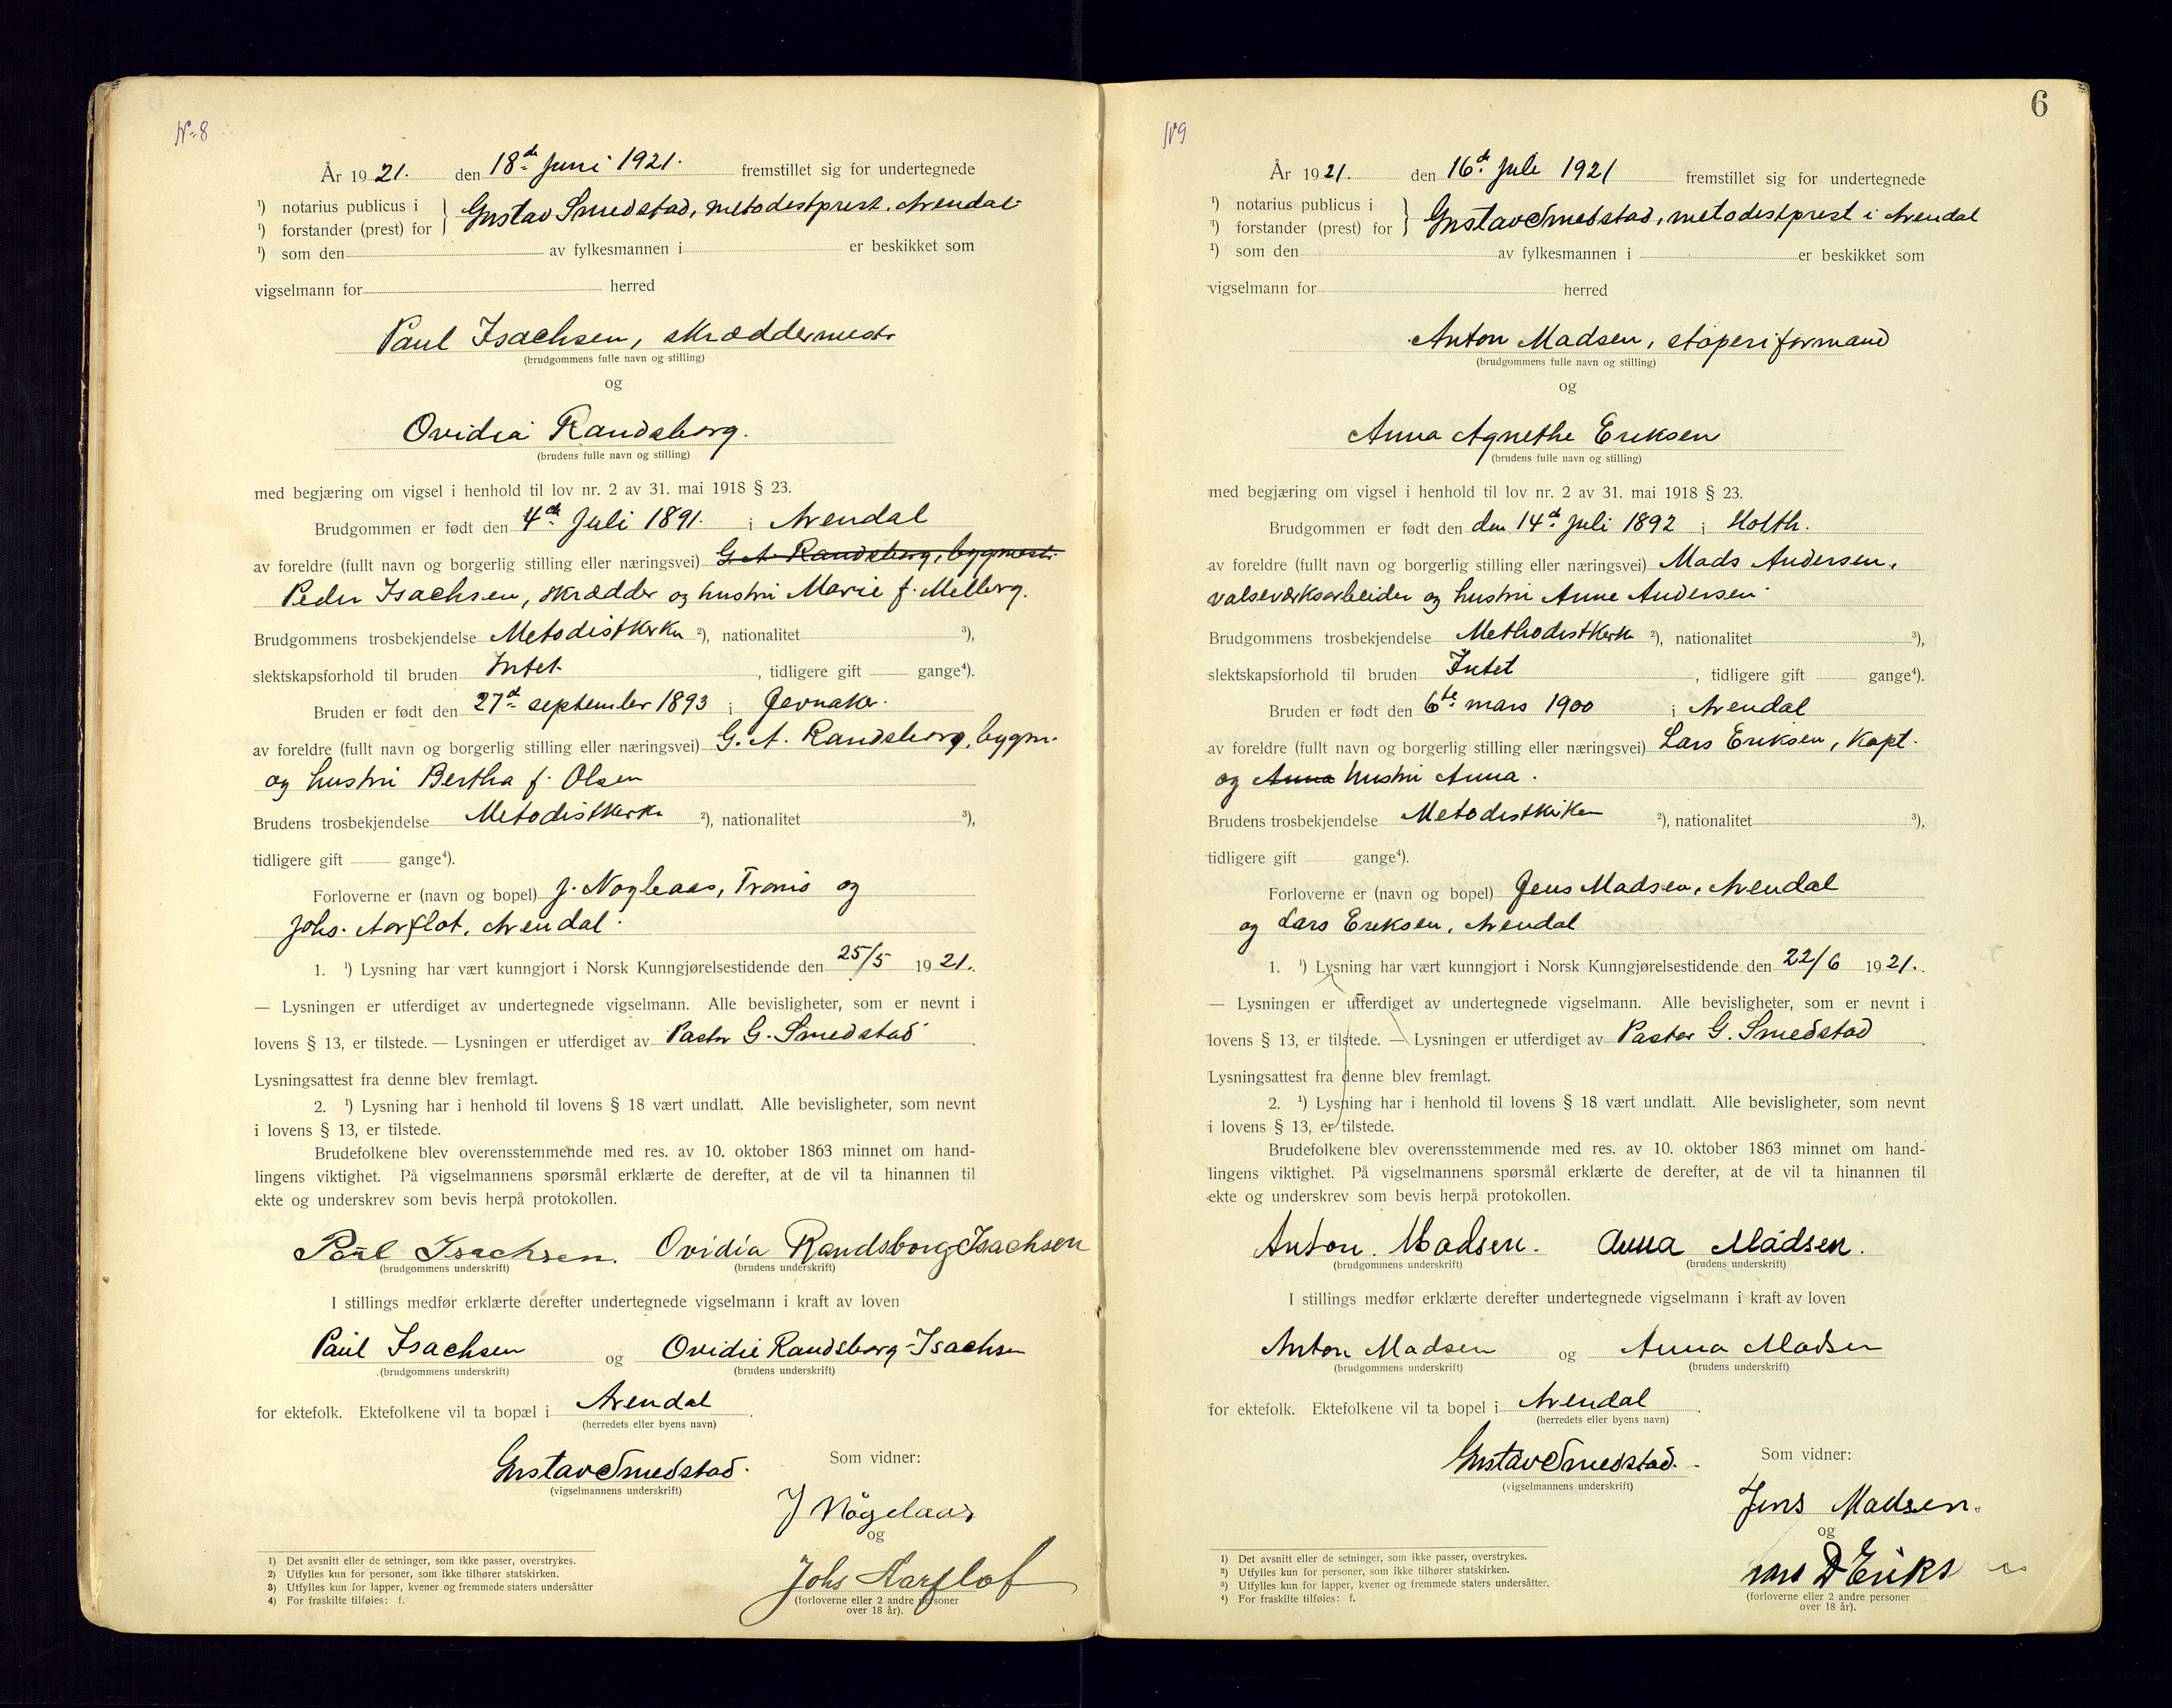 No 8
År 1921. den 18de Juni 1921. fremstillet sig for undertegnede
¹) notarius publicus i
¹) forstander (prest) for } Gustav Smedstad, metodestprest. Arendal.
¹) som den av fylkesmannen i er beskikket som
vigselmann for herred
Paul Isachsen, skræddermestr
(brudgommens fulle navn og stilling)
og
Ovidia Randsborg.
(brudens fulle navn og stilling)
med begjæring om vigsel i henhold til lov nr. 2 av 31. mai 1918 § 23.
Brudgommen er født den 4de Juli 1891. i Arendal
av foreldre (fullt navn og borgerlig stilling eller næringsvei) G. A. Randsborg, bygmest.
Peder Isachsen, skrædder og hustru Marie f. Melberg.
Brudgommens trosbekjendelse Metodistkirken ²), nationalitet ³),
slektskapsforhold til bruden Intet , tidligere gift gange⁴).
Bruden er født den 27de september 1893 i Jevnaker.
av foreldre (fullt navn og borgerlig stilling eller næringsvei) G. A. Randsborg, bygm.
og hustru Bertha f. Olsen
Brudens trosbekjendelse Metodistkirken ²), nationalitet ³),
tidligere gift gange⁴).
Forloverne er (navn og bopel) J. Nøgleaas, Tromø og
Johs. Aarflot, Arendal.
1. ¹) Lysning har vært kunngjort i Norsk Kunngjørelsestidende den 25/5 1921.
— Lysningen er utferdiget av undertegnede vigselmann. Alle bevisligheter, som er nevnt i
lovens § 13, er tilstede. — Lysningen er utferdiget av Pastor G. Smedstad.
Lysningsattest fra denne blev fremlagt.
2. ¹) Lysning har i henhold til lovens § 18 vært undlatt. Alle bevisligheter, som nevnt
i lovens § 13, er tilstede.
Brudefolkene blev overensstemmende med res. av 10. oktober 1863 minnet om hand-
lingens viktighet. På vigselmannens spørsmål erklærte de derefter, at de vil ta hinannen til
ekte og underskrev som bevis herpå protokollen.
Paul Isachsen. Ovidia Randsborg-Isachsen
(brudgommens underskrift) (brudens underskrift)
I stillings medfør erklærte derefter undertegnede vigselmann i kraft av loven
Paul Isachsen og Ovidie Randsborg-Isachsen
(brudgommens underskrift) (brudens underskrift)
for ektefolk. Ektefolkene vil ta bopæl i Arendal.
(herredets eller byens navn)
Gustav Smedstad. Som vidner:
(vigselmannens underskrift)
J Nøgelaas
og
Johs Aarflot
(forloverne eller 2 andre personer
over 18 år).
1) Det avsnitt eller de setninger, som ikke passer, overstrykes.
2) Utfylles kun for personer, som ikke tilhører statskirken.
3) Utfylles kun for lapper, kvener og fremmede staters undersåtter
4) For fraskilte tilføies: f.
6
No 9
År 1921. den 16de Juli 1921 fremstillet sig for undertegnede
¹) notarius publicus i
¹) forstander (prest) for } Gustav Smedstad, metodestprest i Arendal
¹) som den av fylkesmannen i er beskikket som
vigselmann for herred
Anton Madsen, støperiformand
(brudgommens fulle navn og stilling)
og
Anna Agnethe Eriksen
(brudens fulle navn og stilling)
med begjæring om vigsel i henhold til lov nr. 2 av 31. mai 1918 § 23.
Brudgommen er født den den 14de Juli 1892 i Holth.
av foreldre (fullt navn og borgerlig stilling eller næringsvei) Mads Andersen,
valseværksarbeider og hustru Anne Andersen.
Brudgommens trosbekjendelse Methodistkirk ²), nationalitet ³),
slektskapsforhold til bruden Intet , tidligere gift gange⁴).
Bruden er født den 6te mars 1900 i Arendal
av foreldre (fullt navn og borgerlig stilling eller næringsvei) Lars Eriksen, Kapt.
og Anna hustru Anna.
Brudens trosbekjendelse Metodistkirken ²), nationalitet ³),
tidligere gift gange⁴).
Forloverne er (navn og bopel) Jens Madsen, Arendal
og Lars Eriksen, Arendal
1. ¹) Lysning har vært kunngjort i Norsk Kunngjørelsestidende den 22/6 1921.
— Lysningen er utferdiget av undertegnede vigselmann. Alle bevisligheter, som er nevnt i
lovens § 13, er tilstede. — Lysningen er utferdiget av Pastor G. Smedstad.
Lysningsattest fra denne blev fremlagt.
2. ¹) Lysning har i henhold til lovens § 18 vært undlatt. Alle bevisligheter, som nevnt
i lovens § 13, er tilstede.
Brudefolkene blev overensstemmende med res. av 10. oktober 1863 minnet om hand-
lingens viktighet. På vigselmannens spørsmål erklærte de derefter, at de vil ta hinannen til
ekte og underskrev som bevis herpå protokollen.
Anton. Madsen. Anna Madsen.
(brudgommens underskrift) (brudens underskrift)
I stillings medfør erklærte derefter undertegnede vigselmann i kraft av loven
Anton Madsen og Anna Madsen
(brudgommens underskrift) (brudens underskrift)
for ektefolk. Ektefolkene vil ta bopel i Arendal.
(herredets eller byens navn)
Gustav Smedstad. Som vidner:
(vigselmannens underskrift)
Jens Madsen.
og
(forloverne eller 2 andre personer
over 18 år).
1) Det avsnitt eller de setninger, som ikke passer, overstrykes.
2) Utfylles kun for personer, som ikke tilhører statskirken.
3) Utfylles kun for lapper, kvener og fremmede staters undersåtter.
4) For fraskilte tilføies: f.